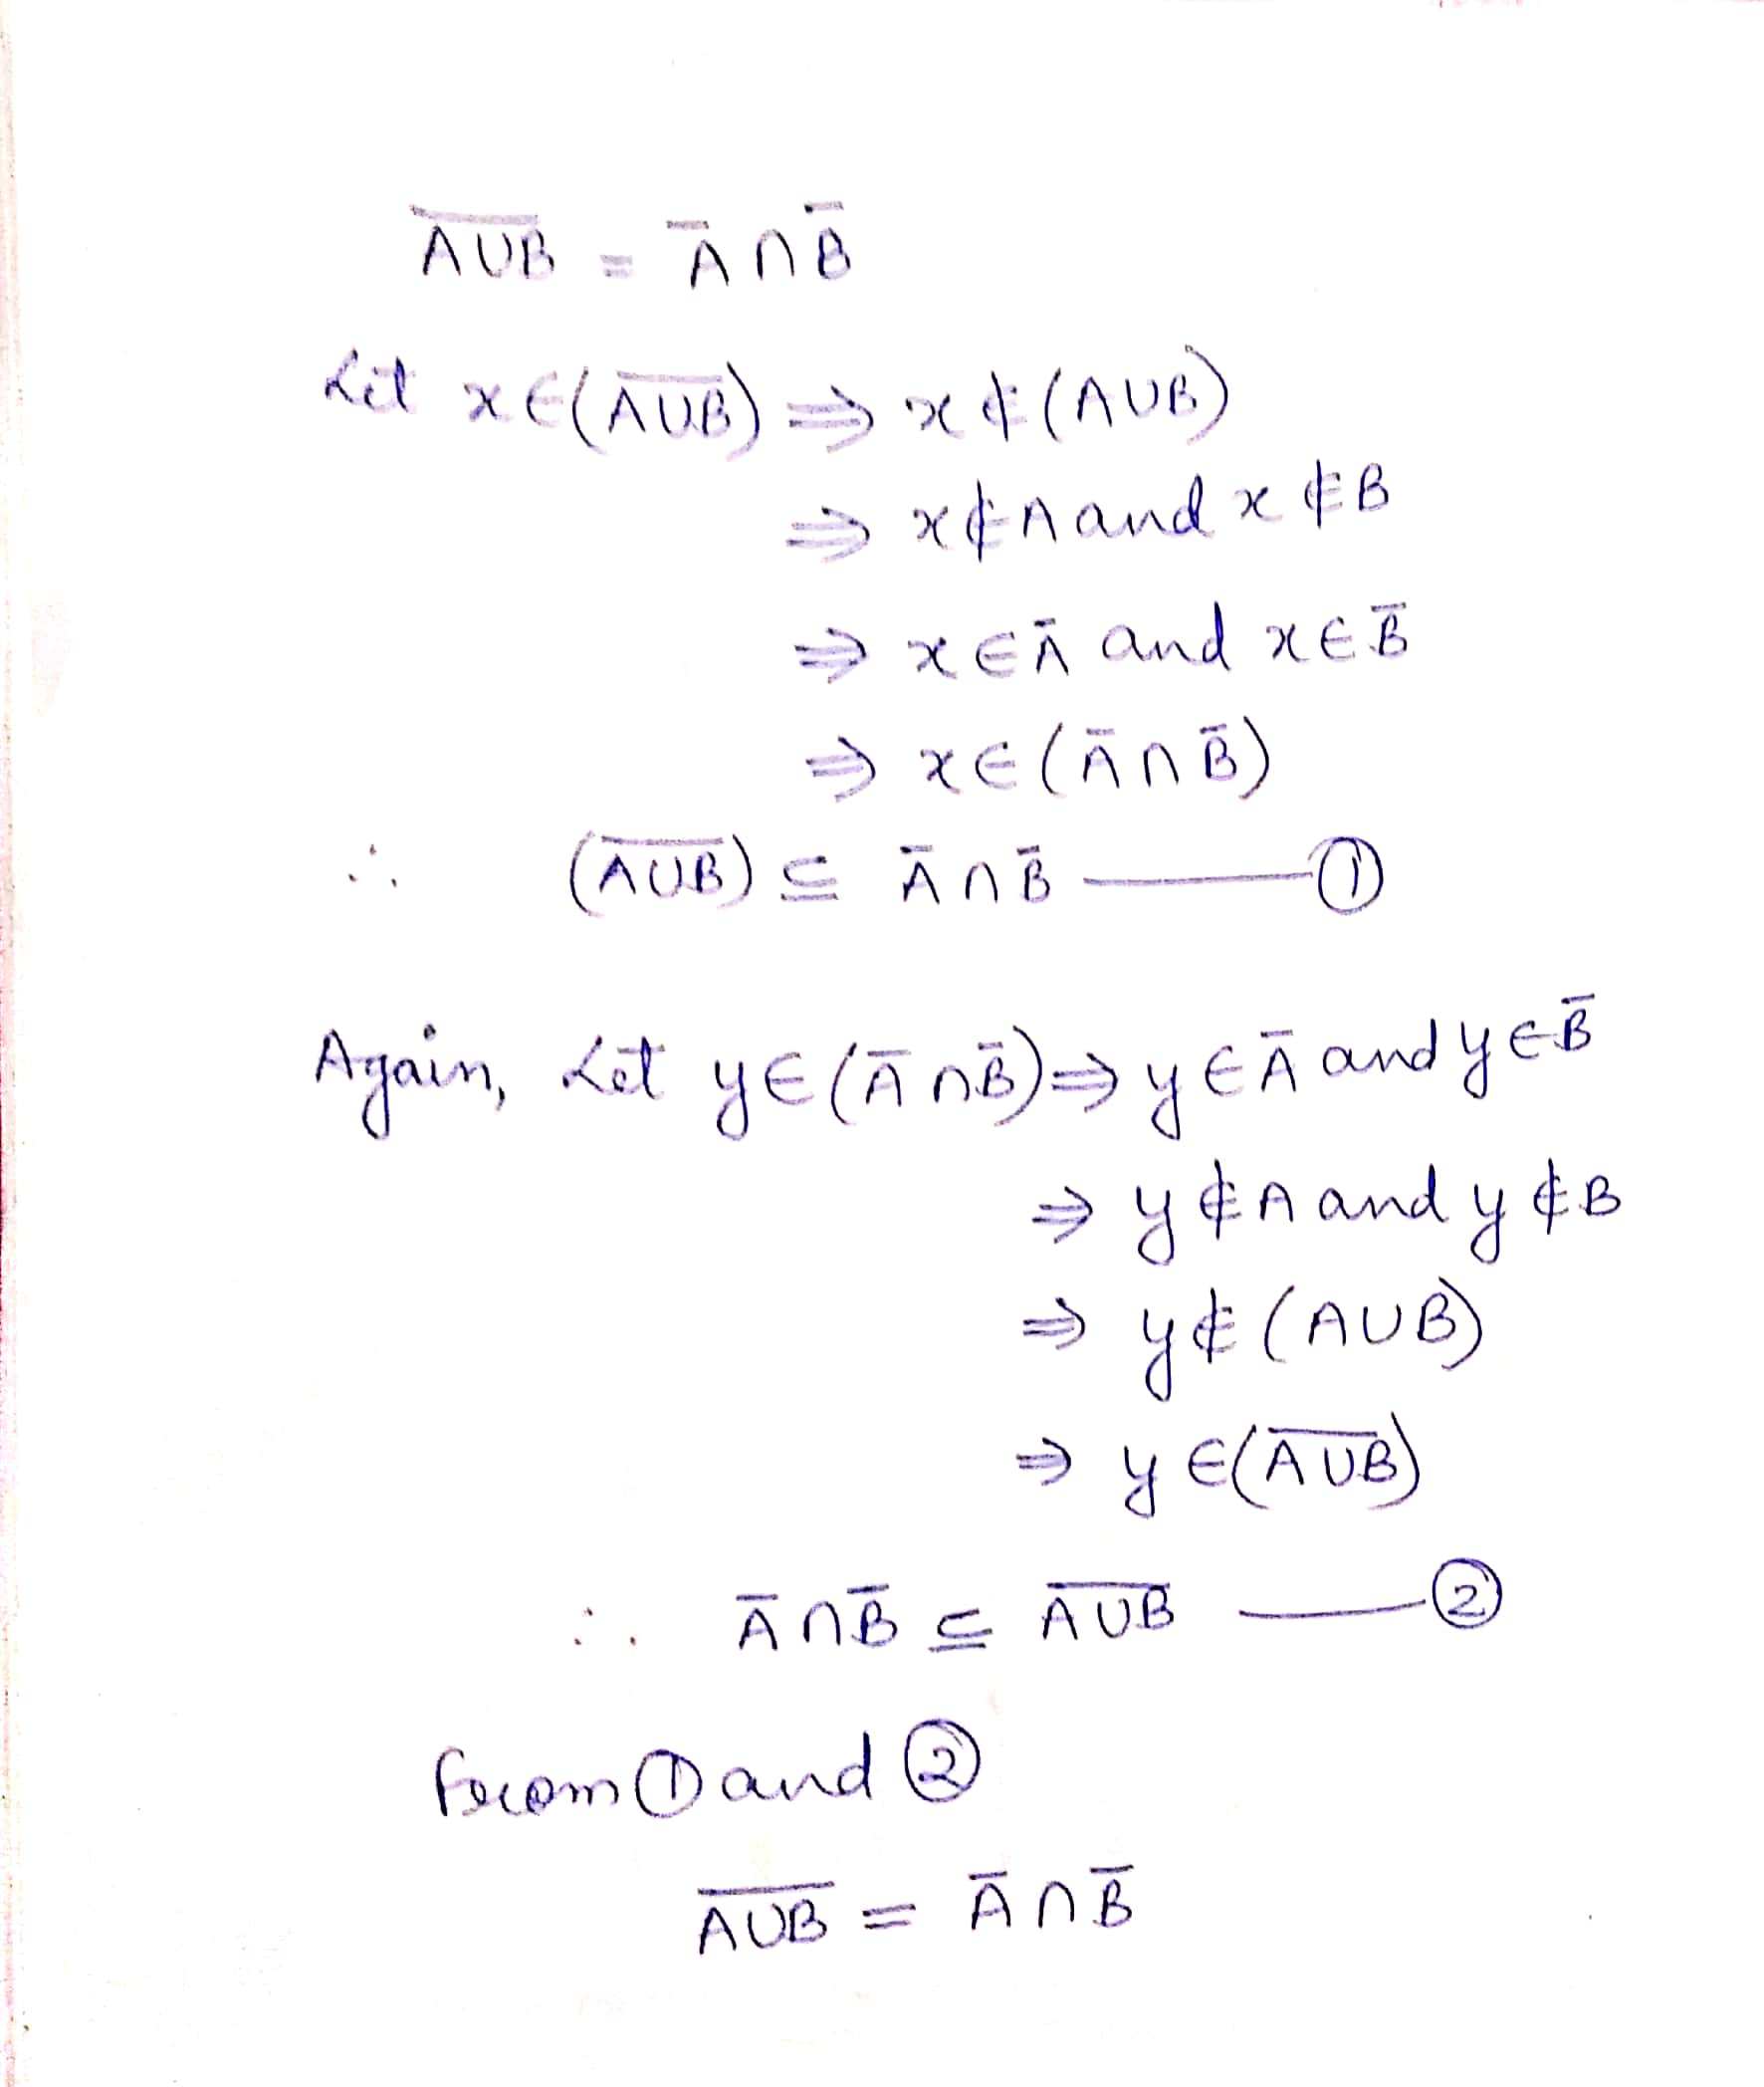 A̅∪̅B̅ = A̅ ∩ B̅
Let x∈(A̅∪̅B̅) ⇒ x∉(A∪B)
⇒ x∉A and x∉B
⇒ x∈A̅ and x∈B̅
⇒ x∈(A̅∩B̅)
∴ (A̅∪̅B̅) ⊆ A̅∩B̅ —— ①
Again, Let y∈(A̅∩B̅) ⇒ y∈A̅ and y∈B̅
⇒ y∉A and y∉B
⇒ y∉(A∪B)
⇒ y∈(A̅∪̅B̅)
∴ A̅∩B̅ ⊆ A̅∪̅B̅ —— ②
From ① and ②
A̅∪̅B̅ = A̅∩B̅